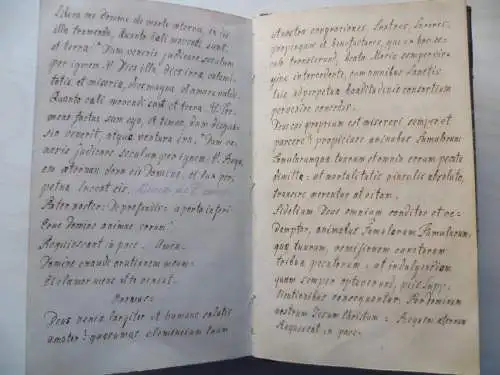 Libera me Domine de morte æterna, in die
illa tremenda, Quando cæli movendi sunt,
et terra: Dum veneris judicare seculum
per ignem. V. Dies illa, dies iræ, calami-
tatis et miseria, dies magna et amara valde.
Quando cæli movendi sunt et terra. V. Tre-
mens factus sum ego, et timeo, dum discus-
sio venerit, atque ventura ira. Dum ve-
neris judicare seculum per ignem. V. Requi-
em æternam dona eis Domine, et lux per-
petua luceat eis.
Pater noster: De profundis = a porta inferi
Erue Domine animas eorum.
Requiescant in pace. Amen.
Domine exaudi orationem meam:
Et clamor meus ad te veniat.
Oremus:
Deus veniæ largitor et humanæ salutis
amator: quæsumus clementiam tuam
nostra congregationis, fratres, sorores
propinquos et benefactores, qui ex hoc se-
culo transierunt, beata Maria semper vir-
gine intercedente, cum omnibus Sanctis
tuis ad perpetuæ beatitudinis consortium
pervenire concedas.
Deus cui proprium est misereri semper et
parcere: propitiare animabus famulorum
famularumque tuarum et omnia eorum peccata
dimitte: ut mortalitatis vinculis absolutæ,
transire mereantur ad vitam.
Fidelium Deus omnium conditor et re-
demptor, animabus famulorum famularum,
que tuarum, remissionem cunctorum
tribue peccatorum: ut indulgentiam
quam semper optaverunt, piis supp-
licationibus consequantur. Per Dominum
nostrum Jesum Christum = Requiem æternam
Requiescant in pace =